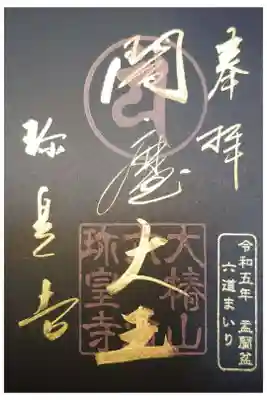 奉拝
令和五年 盂蘭盆
六道まいり
閻魔大王
大椿山
珎皇寺
珎皇寺